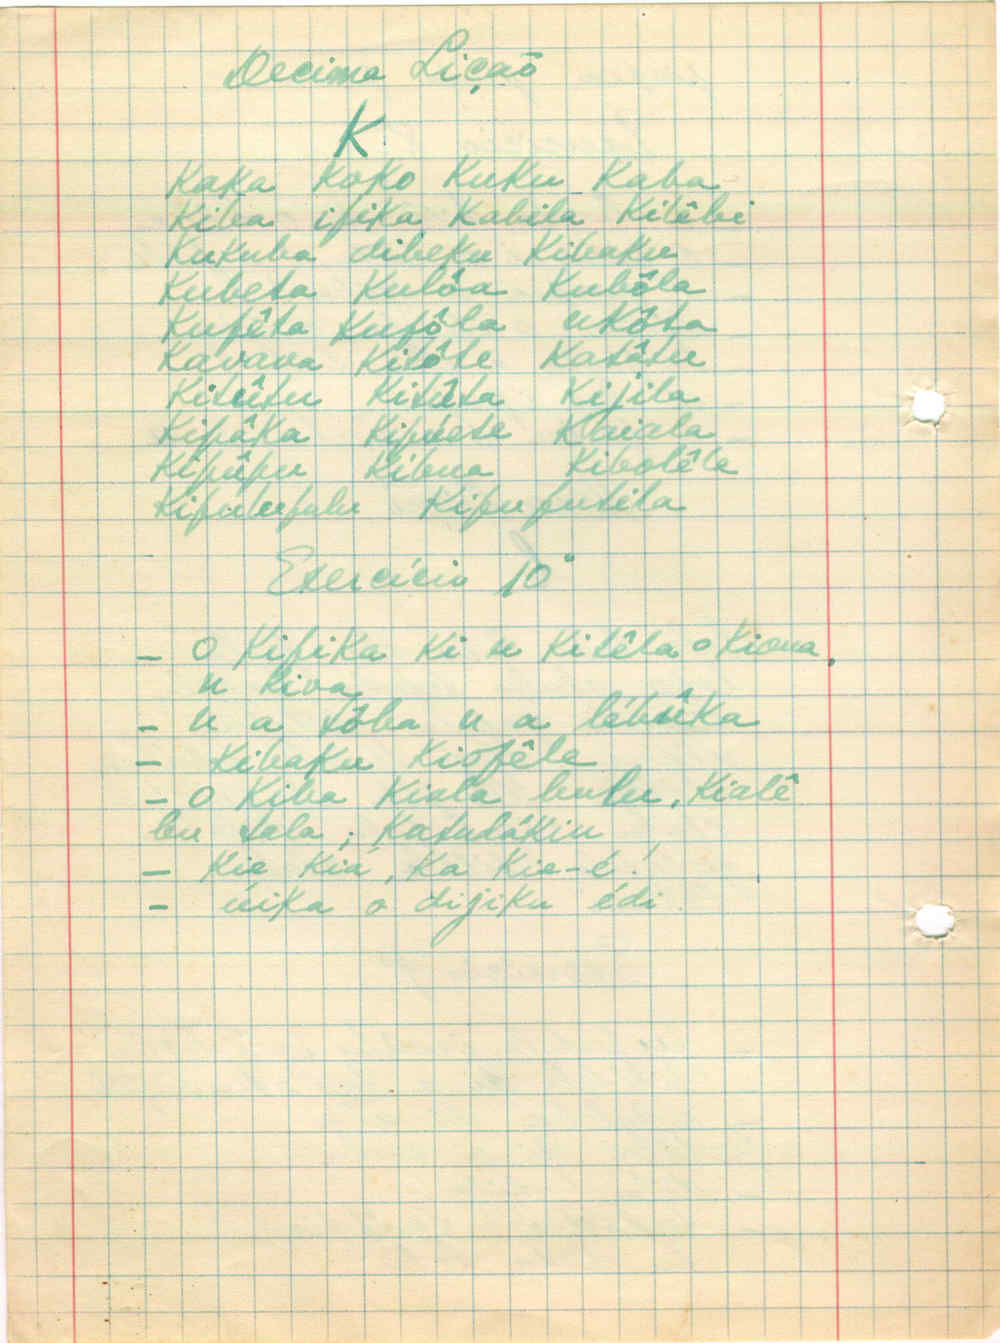 Decima Liçaõ
K
Kaka Koko Kuku Kaba
Kiba ifika Kabila Kitêbi
Kukuba dibeku Kibaku
Kubeta Kulôa Kubôla
Kufêta Kufôla ukôta
Kavava Kitôte Katâtu
Kitûtu Kitûta Kijila
Kipâka Kipuete Kaiala
Kipûpu Kibua Kibolêle
Kipulupulu Kipuputila
Exercicio 10º
- O Kifika Ki u Kitêla o Kioua,
u Kiva
- u a tôba u a lébûka
- Kibaku Kiofêle
- O Kiba Kiala bulu, Kialê
bu tala; Katulákiu
- Kie Kiá, Ka Kie-é!
- úika o dijiku édi.